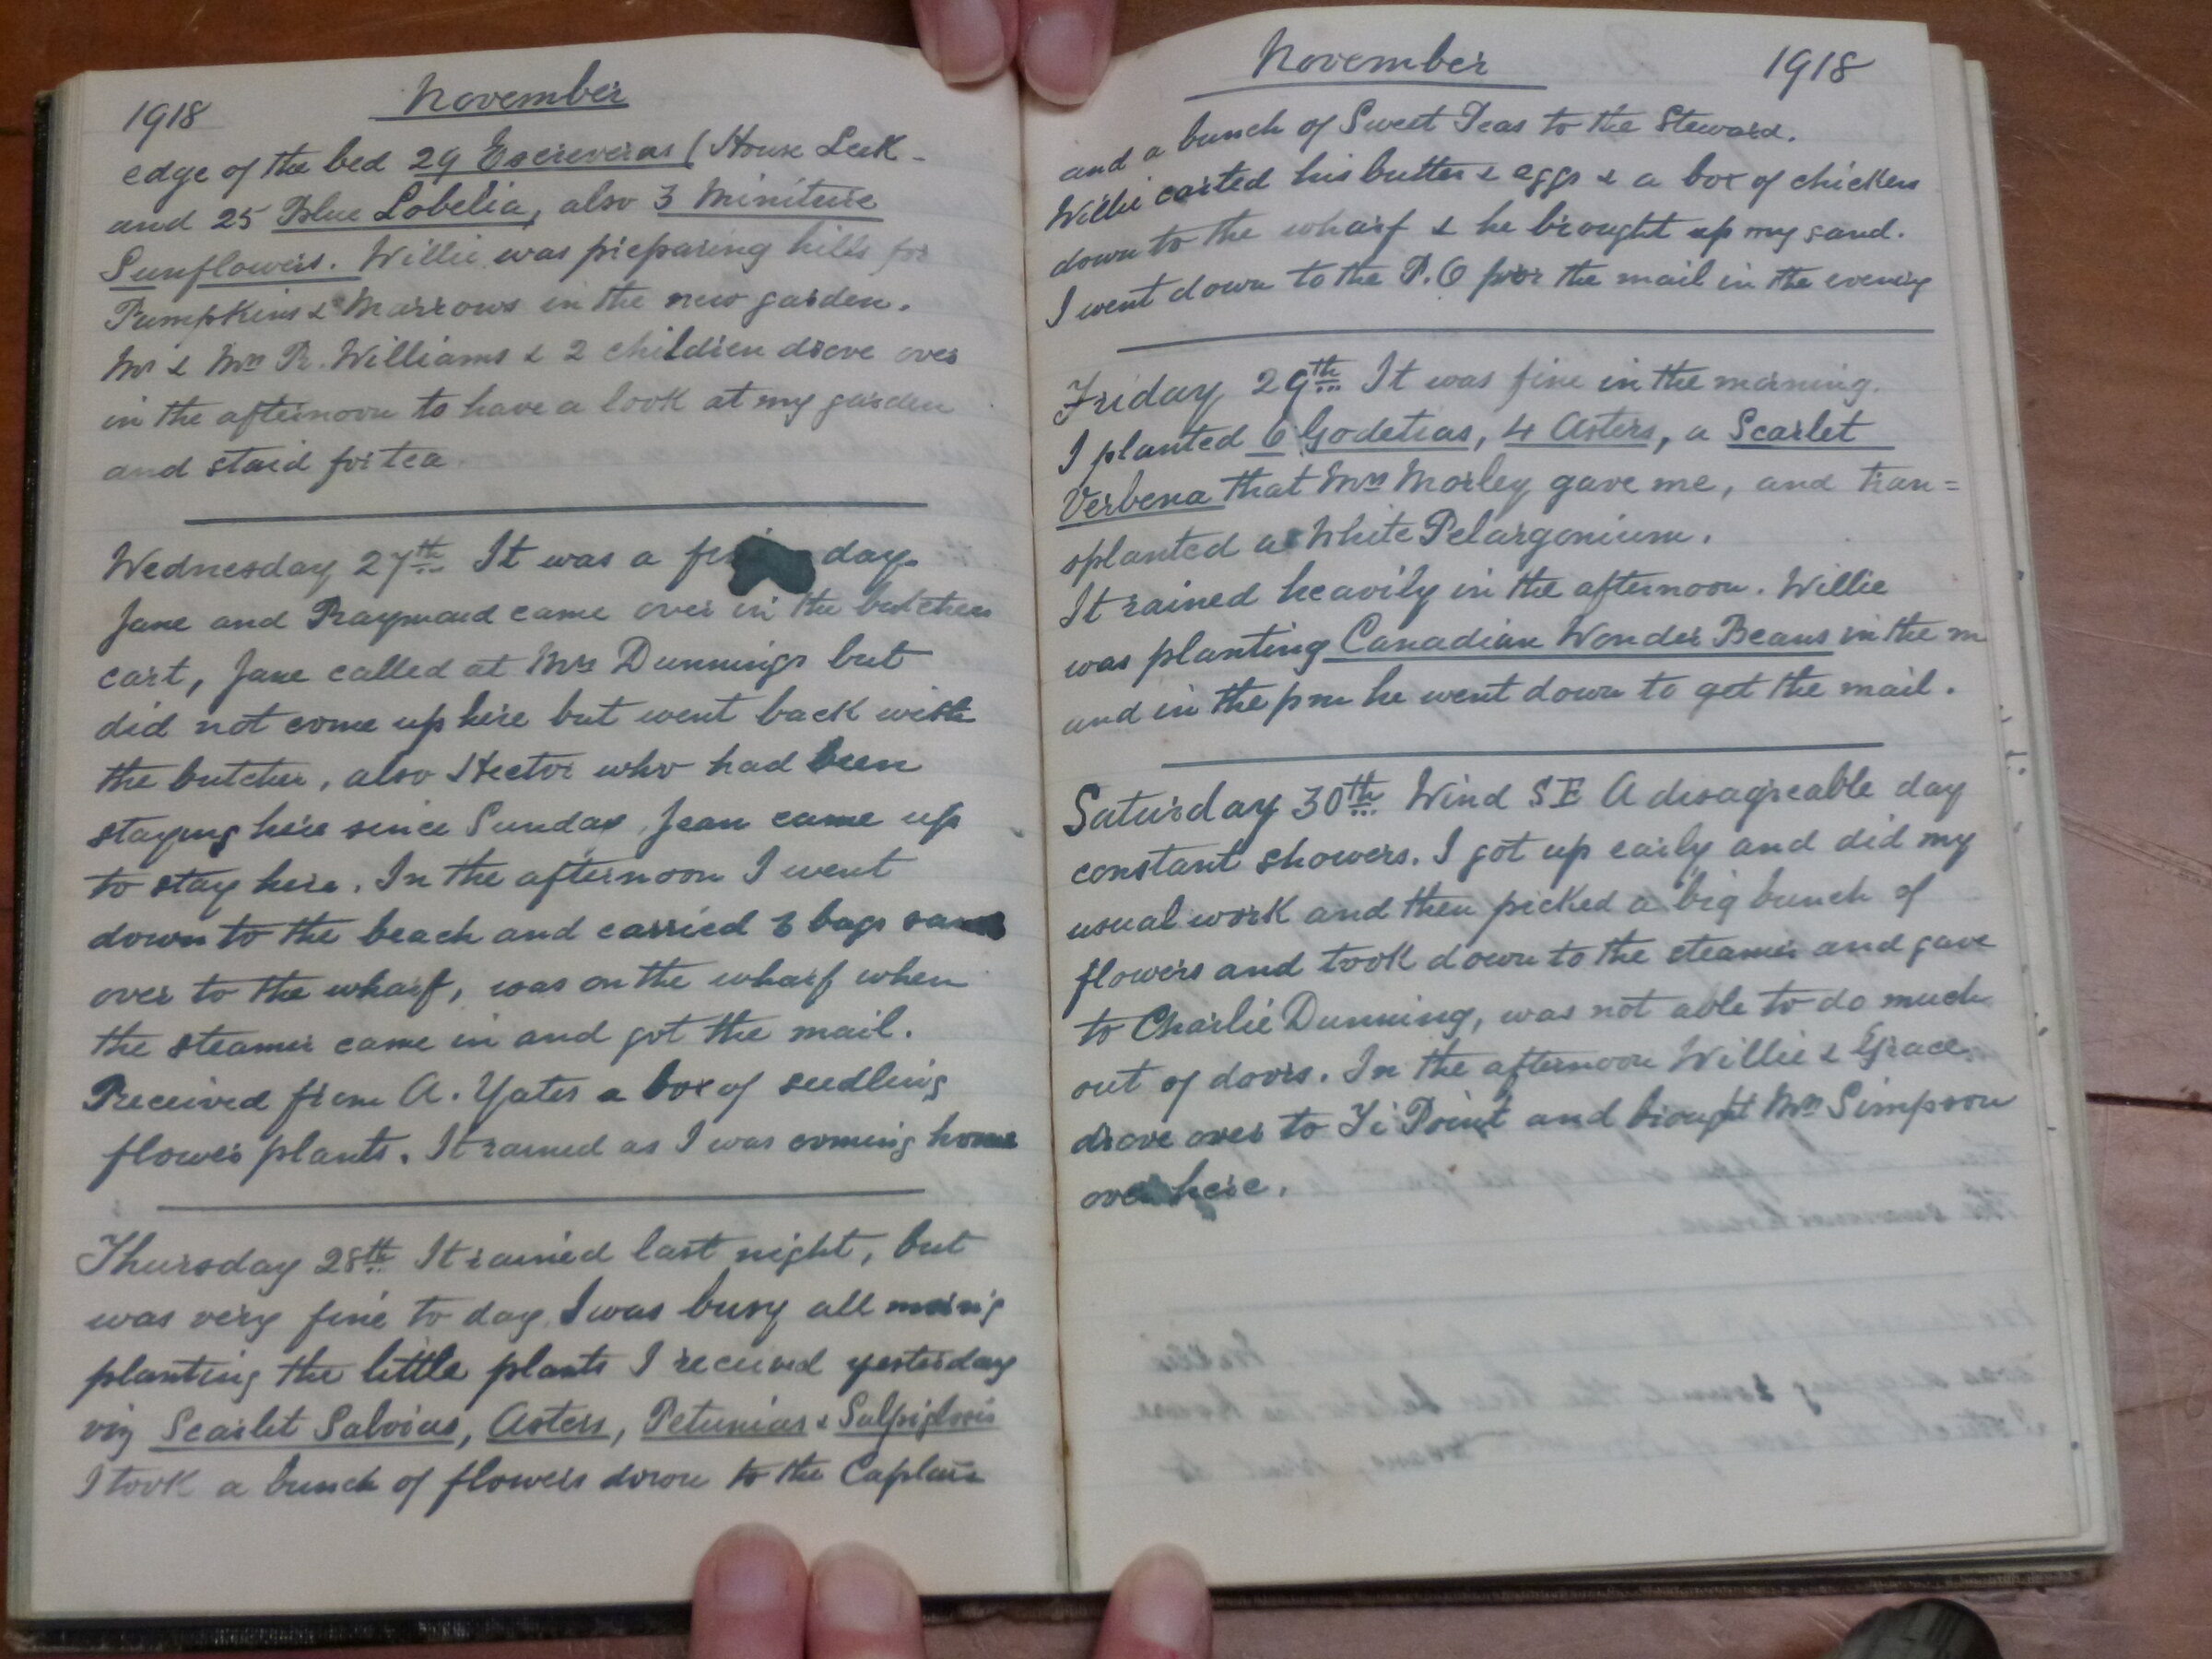 1918 November
edge of the bed 29 Echeverias (House Leek -
and 25 Blue Lobelia, also 3 Miniture
Sunflowers. Willie was preparing hills for
Pumpkins & Marrows in the new garden.
Mr & Mrs R. Williams & 2 children drove over
in the afternoon to have a look at my garden
and staid for tea
Wednesday 27th It was a day.
Jane and Raymond came over in the butchers
cart, Jane called at Mrs Dunnings but
did not come up here but went back with
the butcher, also Hector who had been
staying here since Sunday, Jean came up
to stay here. In the afternoon I went
down to the beach and carried 3 bags
over to the wharf, was on the wharf when
the steamer came in and got the mail.
Received from A. Yates a box of seedling
flower plants. It rained as I was coming home
Thursday 28th It rained last night, but
was very fine to day. I was busy all morn'g
planting the little plants I received yesterday
viz Scarlet Salvias, Asters, Petunias & Salpiglosis
I took a bunch of flowers down to the Captain
November 1918
and a bunch of Sweet Peas to the Steward.
Willie carted his butter & eggs & a box of chickens
down to the wharf & he brought up my sand.
I went down to the P.O for the mail in the evening
Friday 29th It was fine in the morning.
I planted 6 Godetias, 4 Asters, a Scarlet
Verbena that Mrs Morley gave me, and tran=
splanted a White Pelargonium.
It rained heavily in the afternoon. Willie
was planting Canadian Wonder Beans in the m
and in the pm he went down to get the mail.
Saturday 30th Wind SE A disagreable day
constant showers. I got up early and did my
usual work and then picked a big bunch of
flowers and took down to the steamer and gave
to Charlie Dunning, was not able to do much
out of doors. In the afternoon Willie & Grace
drove over to Ti Point and brought Mrs Simpson
over here.